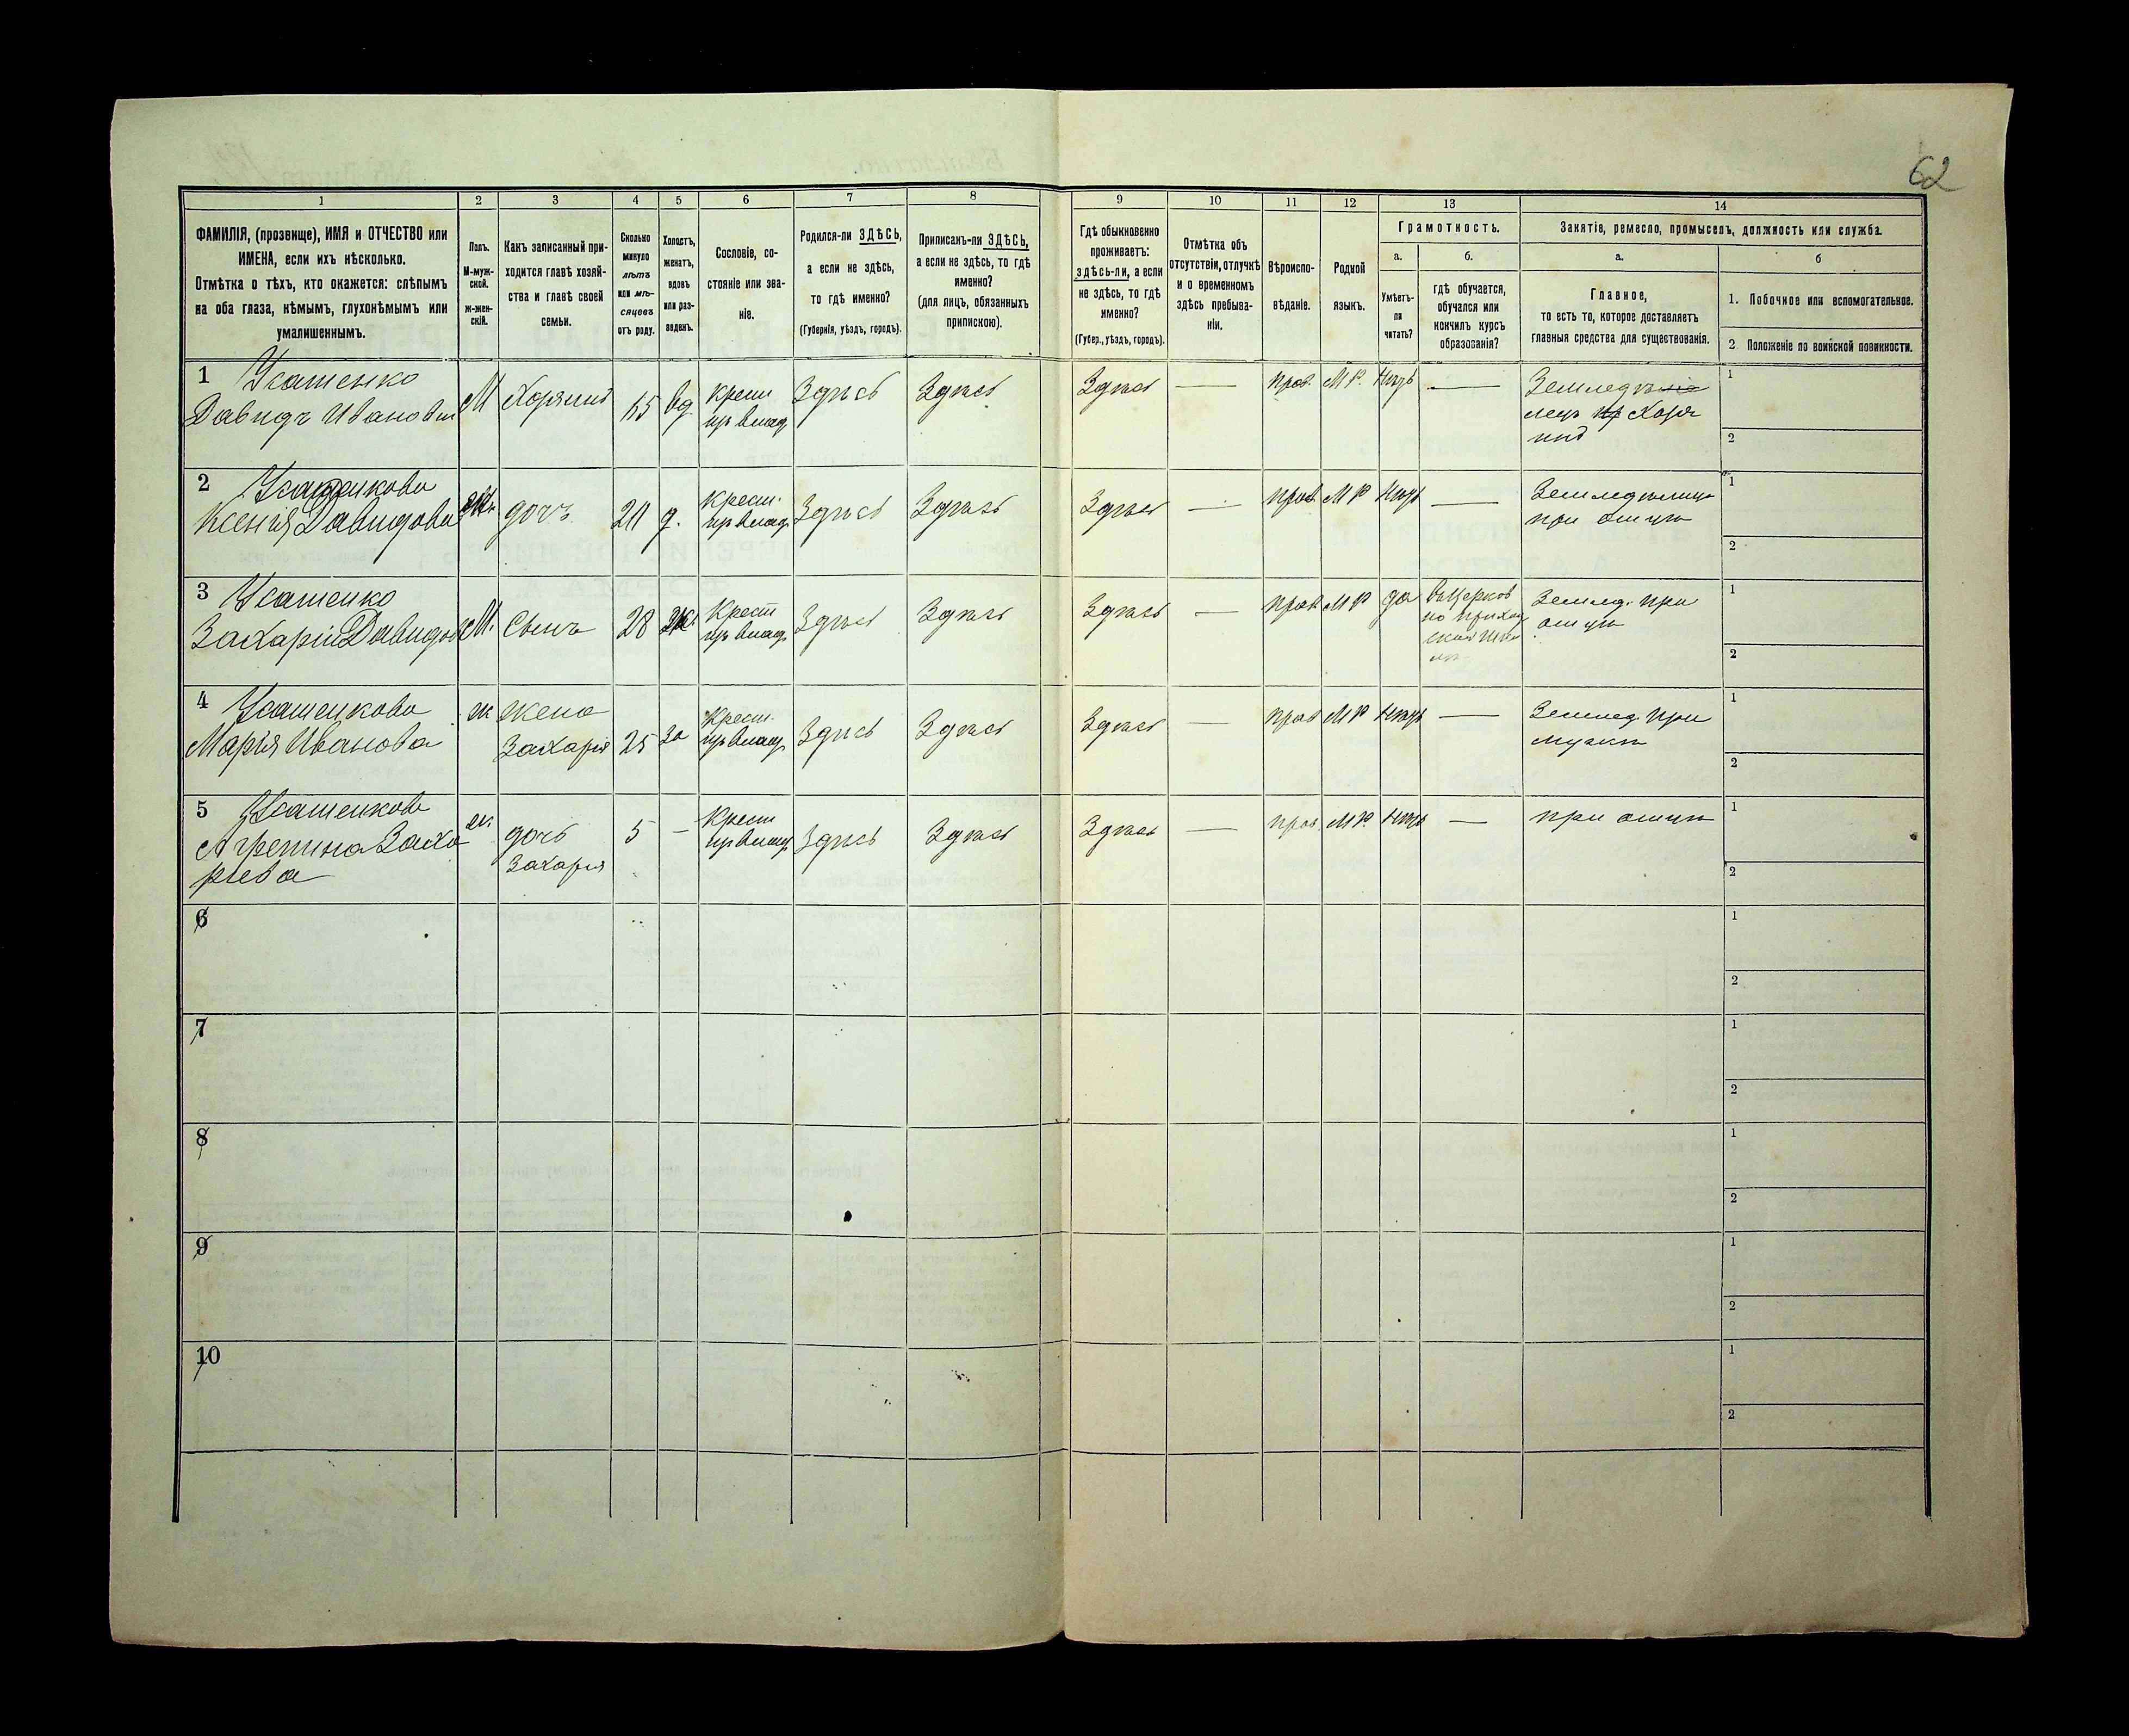 62
1
2
3
4
5
6
7
8
9
10
11
12
13
14
ФАМИЛІЯ, (прозвище), ИМЯ и ОТЧЕСТВО или
ИМЕНА, если ихъ нѣсколько.
Отмѣтка о тѣхъ, кто окажется: слѣпымъ
на оба глаза, нѣмымъ, глухонѣмымъ или
умалишеннымъ.
Полъ.
М-муж-
ской.
ж-жен-
скій.
Какъ записанный при-
ходится главѣ хозяй-
ства и главѣ своей
семьи.
Сколько
минуло
лѣтъ
или мѣ-
сяцевъ
отъ роду.
Холостъ,
женатъ,
вдовъ
или раз-
веденъ.
Сословіе, со-
стояніе или зва-
ніе.
Родился-ли ЗДѢСЬ,
а если не здѣсь,
то гдѣ именно?
(Губернія, уѣздъ, городъ).
Приписанъ-ли ЗДѢСЬ,
а если не здѣсь, то гдѣ
именно?
(для лицъ, обязанныхъ
припискою).
Гдѣ обыкновенно
проживаетъ:
здѣсь-ли, а если
не здѣсь, то гдѣ
именно?
(Губер., уѣздъ, городъ).
Отмѣтка объ
отсутствіи, отлучкѣ
и о временномъ
здѣсь пребыва-
ніи.
Вѣроиспо-
вѣданіе.
Родной
языкъ.
Грамотность.
а.
Умѣетъ-
ли
читать?
б.
гдѣ обучается,
обучался или
кончилъ курсъ
образованія?
Занятіе, ремесло, промыселъ, должность или служба.
а.
Главное,
то есть то, которое доставляетъ
главныя средства для существованія.
б
1. Побочное или вспомогательное.
2. Положеніе по воинской повинности.
1
Давидъ Иванович
М
Хозяинъ
вд
Крест
Здѣсь
Здѣсь
Здѣсь
—
прав.
М Р.
Нѣтъ
—
хозя
инъ
1
2
2
Ксенія Давидова
дочь
д.
Крест.
Здѣсь
Здѣсь
Здѣсь
—
прав
М Р
Нѣтъ
—
при отцѣ
1
2
3
Захарій Давидов
М.
Сынъ
28
Крест
Здѣсь
Здѣсь
Здѣсь
—
прав
М Р
да
Въ Церков
но приход
ской шко
лѣ
Землед. при
отцѣ
1
2
4
Марія Иванова
ж
жена
Захарія
25
за
Крест.
Здѣсь
Здѣсь
Здѣсь
—
прав
М Р
Нѣтъ
—
Землед. при
мужѣ
1
2
5
Агрепина Заха
риева
ж
дочь
Захарія
5
—
Крест
Здѣсь
Здѣсь
Здѣсь
—
прав.
М Р.
Нѣтъ
—
при отцѣ
1
2
6
1
2
7
1
2
8
1
2
9
1
2
10
1
2